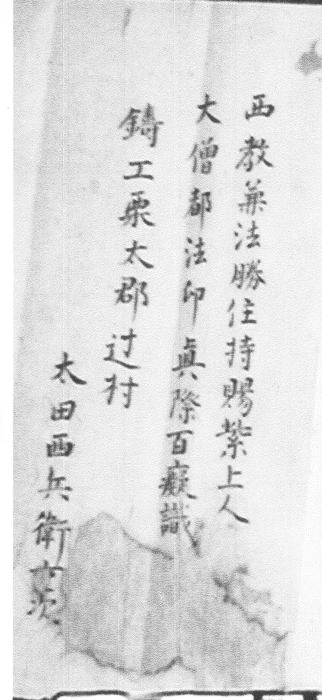 西教兼法勝住持賜紫上人
大僧都法印眞際百癡識
鋳工栗太郡辻村
太田西兵衛